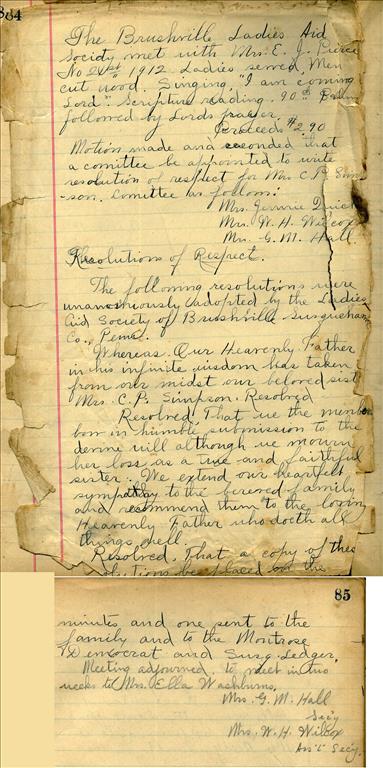 84
The Brushville Ladies Aid
society met with Mrs. E. J. Pierce
No 21st 1912 Ladies served, Men
cut wood. Singing, "I am coming
Lord". Scripture reading. 90th Psalm
followed by Lords prayer.
Proceeds $2.90
Motion made and seconded that
a comittee be appointed to write
resolution of respect for Mrs C. P. Sim-
-son. Comittee as follows:
Mrs. Jennie Quick
Mrs. W. H. Wilcox
Mrs. G. M. Hall
Resolutions of Respect.
The following resolutions were
unanimously adopted by the Ladies
Aid Society of Brushville Susquehanna
Co., Penna.
Whereas. Our Heavenly Father
in his infinite wisdom has taken
from our midst our beloved sist
Mrs. C. P. Simpson. Resolved
Resolved, That we the members
bow in humble submission to the
devine will although we mourn
her loss as a true and faithful
sister. We extend our heartfelt
sympathy to the bereved family
and recommend them to the loving
Heavenly Father who doeth all
things well.
Resolved, That a copy of thes
resolutions be placed on the
85
minutes and one sent to the
family and to the Montrose
Democrat and Susq. Ledger.
Meeting adjourned. to meet in two
weeks to Mrs. Ella Washburns.
Mrs. G. M. Hall
Sec'y
Mrs. W. H. Wilcox
Ass't Sec'y.